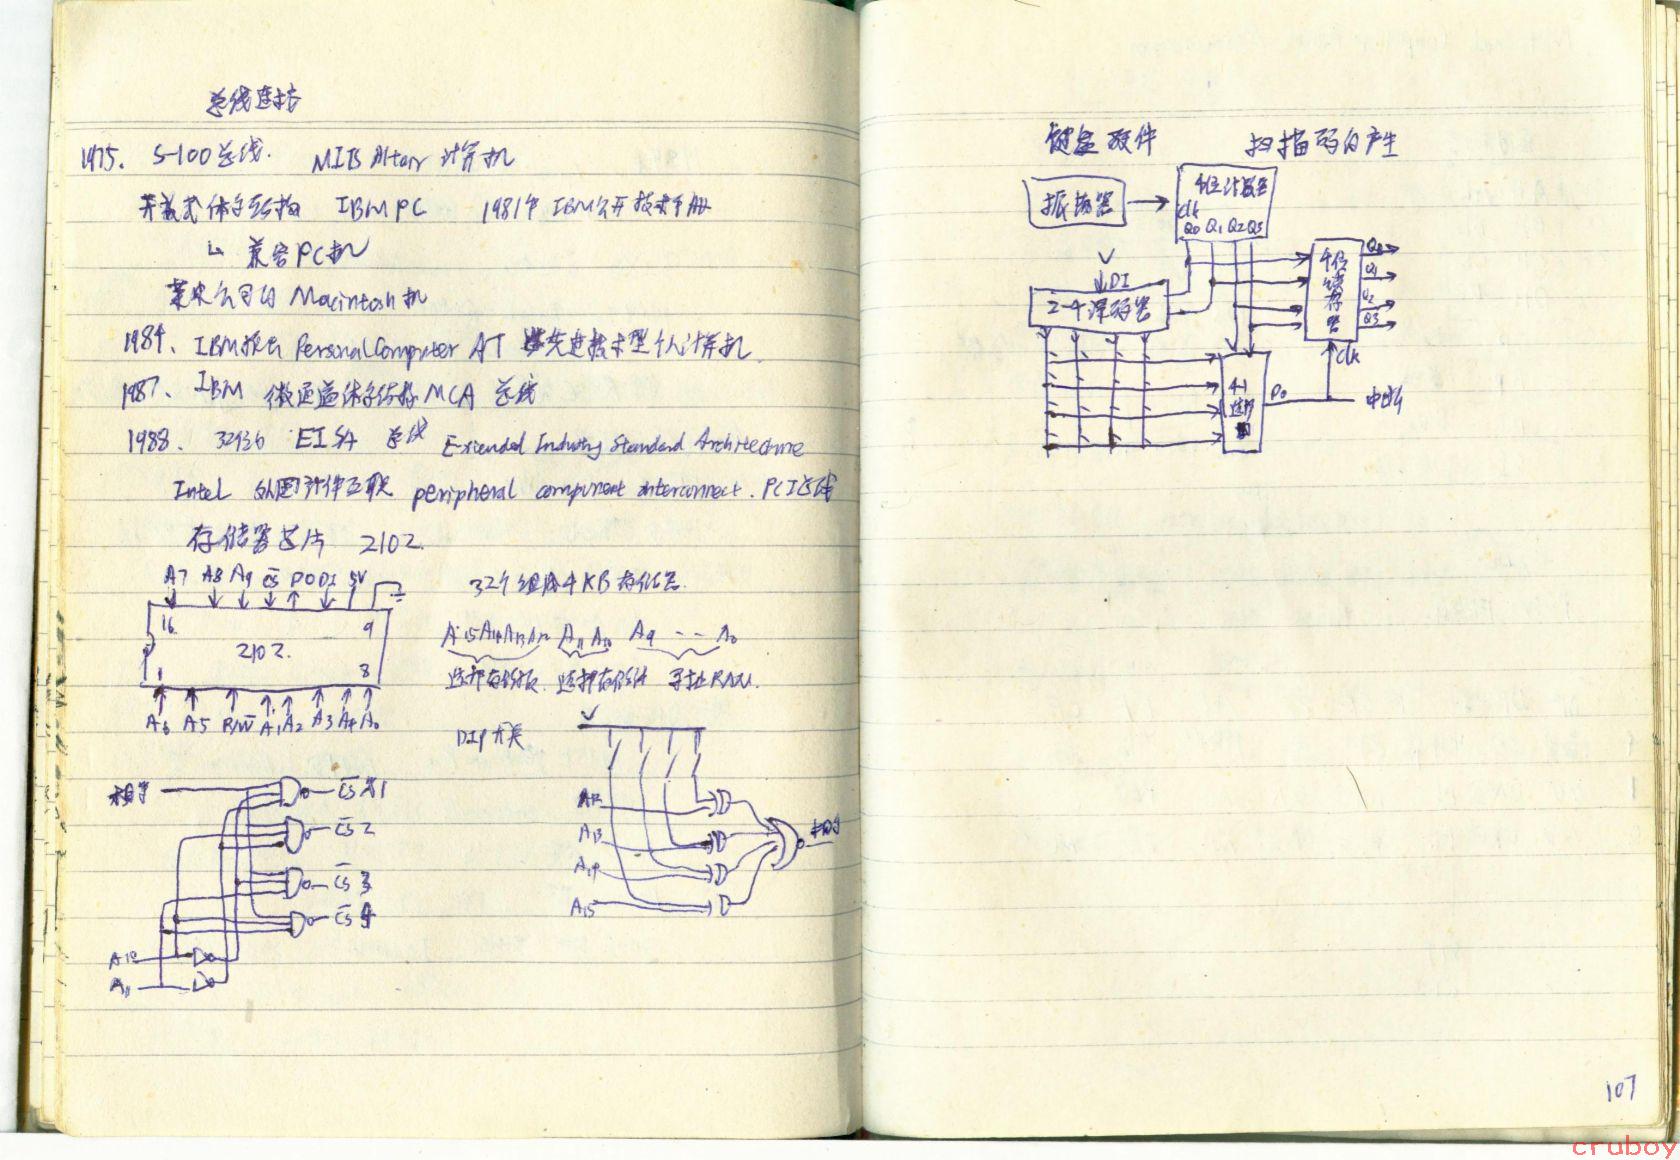 总线连接
1975. S-100总线. MITS Altair 计算机
开放式体系结构 IBM PC 1981年 IBM公开技术手册
↳ 兼容PC机
苹果公司的 Macintosh机
1984、IBM推出 Personal Computer AT 先进技术型个人计算机
1987、IBM 微通道体系结构 MCA 总线
1988. 32位 EISA 总线 Extended Industry Standard Architecture
Intel 外围部件互联 peripheral component interconnect. PCI总线
存储器芯片 2102.
A7 A8 A9 C̅S̅ DO DI 5V
32个组成4KB存储器.
16 9
2102.
1 8
A15A14A13A12 A11 A10 A9 -- A0
选择存储板. 选择存储体 寻址RAM.
A6 A5 R/W̅ A1 A2 A3 A4 A0
DIP开关
相等
C̅S̅ 1
C̅S̅ 2
C̅S̅ 3
C̅S̅ 4
A10
A11
A12
A13
A14
A15
相等
键盘硬件 扫描码的产生
振荡器
4位计数器
clk
Q0 Q1 Q2 Q3
V
DI
2-4译码器
4位锁存器
Q0
Q1
Q2
Q3
clk
4-1选择
D0
中断
107
cruboy